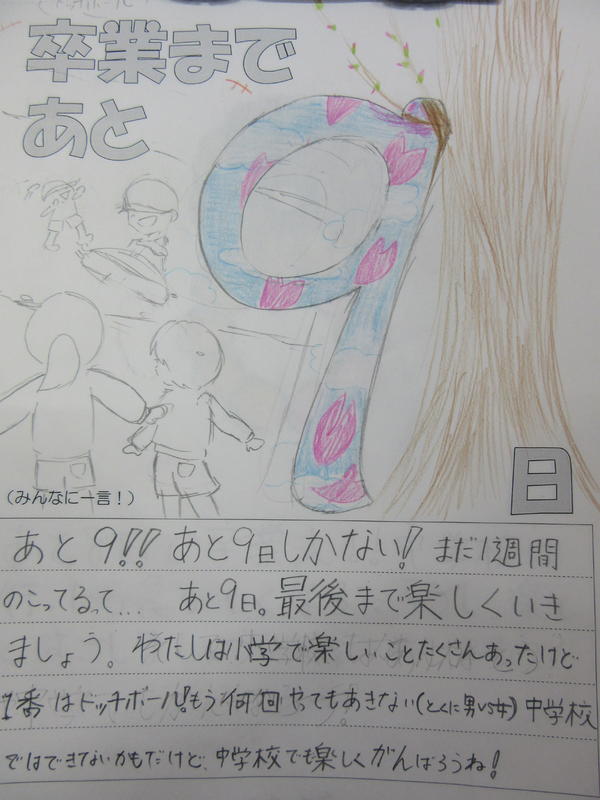 卒業まで
あと
9
日
(みんなに一言!)
あと9!! あと9日しかない! まだ1週間
のこってるって... あと9日。最後まで楽しくいき
ましょう。わたしは小学で楽しいことたくさんあったけど
1番はドッチボール!もう何回やってもあきない(とくに男vs女)中学校
ではできないかもだけど、中学校でも楽しくがんばろうね!